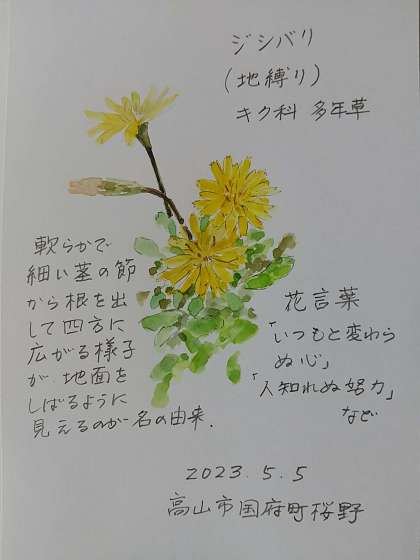 ジシバリ
（地縛り）
キク科 多年草
軟らかで
細い茎の節
から根を出
して四方に
広がる様子
が、地面を
しばるように
見えるのが名の由来.
花言葉
「いつもと変わら
ぬ心」
「人知れぬ努力」
など
2023.5.5
高山市国府町桜野